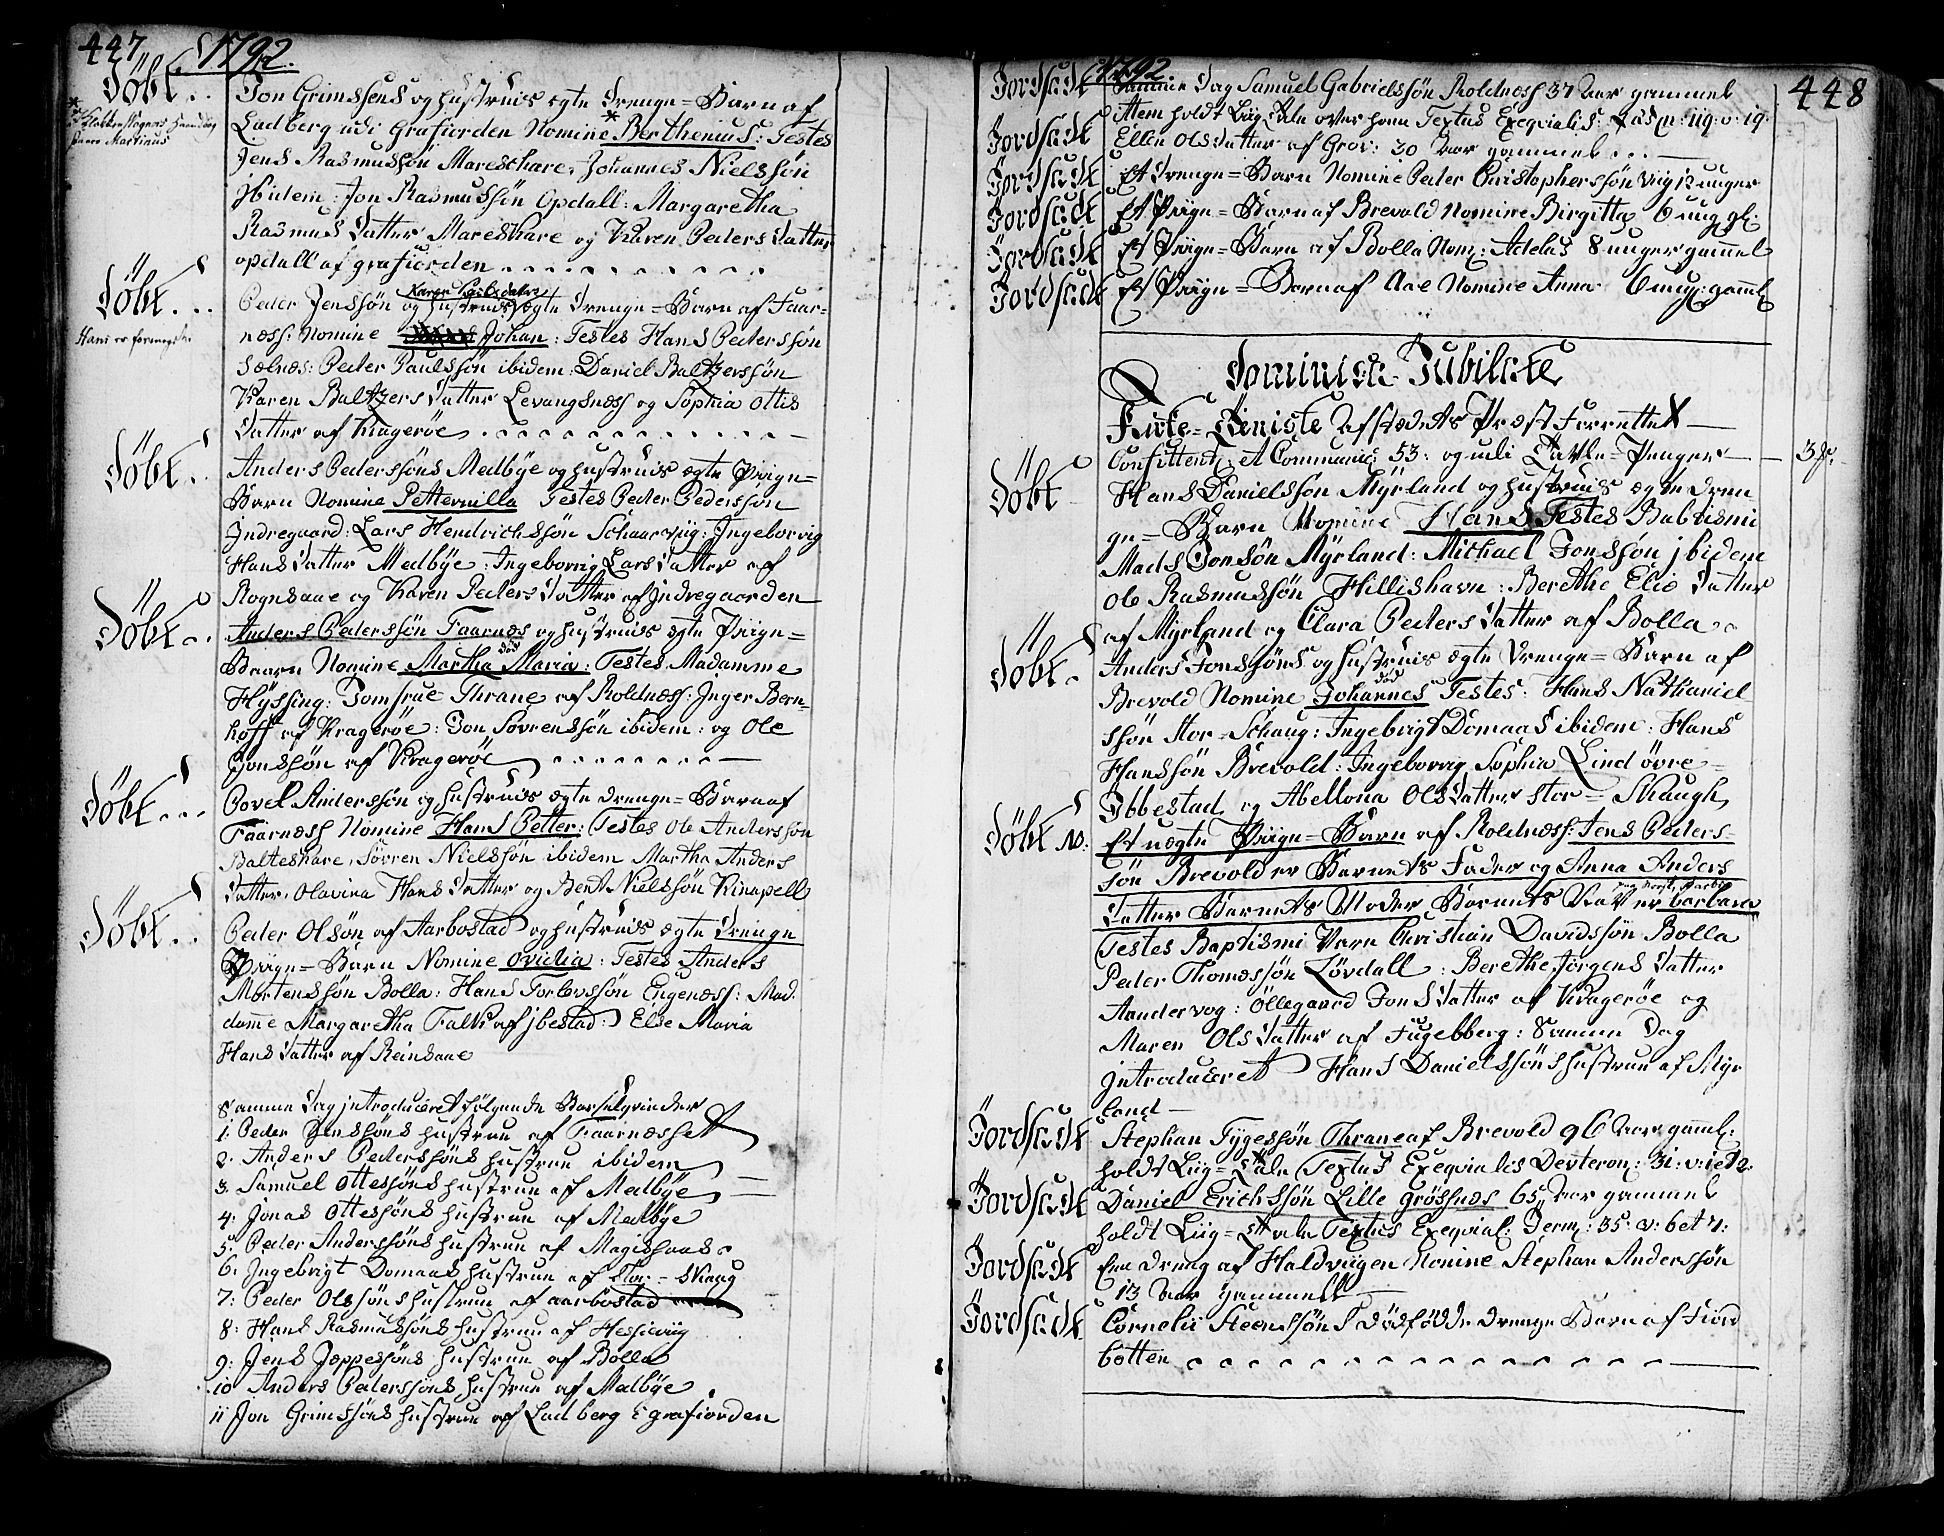 447
1792.
Döbt..
Jon Grimssöns og hustruis ægte Drenge=Barn af
Ladberg udi Grafiorden Nomine * Berthenius: Testes
Jens Rasmussøn Mareschare, Johannes Nielssøn
jbidem: Jon Rasmussøn Opdall: Margaretha
Rasmus Datter Mareskare og Karen Peders Datter
opdall af grafiorden
Döbt...
Peder Jenssøn og hustruis ægte Drenge=Barn af Faar-
næss: Nomine Johan: Testes Hans Pederssøn
Sælnæs: Peder Paulssøn ibidem: Daniel Baltzerssøn
Karen Baltzers Datter Levangsnæss og Sophia Ottis
Datter af Kragerøe
Döbt..
Anders Pederssøns Medbye og hustruis ægte Piige=
Barn Nomine Petternilla Testes Peder Pederssøn
Indregaard: Lars Hendrichssøn Schaarviig: Ingeborvig
Hans Datter Medbye: Ingeborvig Lars Datter af
Rognsaae og Karen Peders Datter af Indregaarden
Döbt..
Anders Pederssøn Faarnæs og hustruis ægte Piige=
Baarn Nomine Martha Maria: Testes Madamme
død
Hyssing: Jomfrue Thrane af Roldnæss: Inger Bern-
hoff af Kragerøe: Jon Sovrenssøn ibidem: og Ole
Jonssøn af Kragerøe
Döbt...
Povel Anderssøn og hustruis ægte drenge=Barn af
Faarnæss Nomine Hans Petter: Testes Ole Anderssøn
Balteskare, Sövren Nielssøn ibidem Martha Anders
Datter, Olavina Hans Datter og Bent Nielssøn Kinapell
Döbt..
Peder Olsøn af Aarbostad og hustruis ægte Drenge
Piige=Barn Nomine Ovidia: Testes Anders
Mortenssøn Bolla: Hans Torlevssøn Engenæss: Mad-
damme Margaretha Falk af jbestad: Else Maria
Hans Datter af Reinsaae
Samme Dag introduceret følgende Barselqvinder
1: Peder Jenssøns hustrue af Faarnæsset
2. Anders Pederssøns hustrue ibidem
3. Samuel Ottessøns hustrue af Medbye
4: Jonas Ottessøns hustrue af Medbye
5: Peder Anderssøns hustrue af
6: Ingebrigt Domaas hustrue af Stor=Skaug
7: Peder Olssøns hustrue af aarbostad
8: Hans Rasmussøns hustrue af Hessieviig
9: Jens Jeppessøns hustrue af Bolla
10 Anders Pederssøns hustrue af Medbye
11 Jon Grimssøns hustrue af Ladberg i grafiorden
1792.
448
Jordfæstet
Samme Dag Samuel Gabrielssøn Roldnæss 37 Aar gammel
Item holdt Liig Tale over ham Textus Exequialis: Psalm: 119: v: 19.
Jordfæstet
Ellen Ols Datter af Grov: 30 Aar gammel
Jordfæstet
Et Drenge=Barn Nomine Peder Christopherssøn Viig 12 uger
Jordfæstet
Et Piige=Barn af Brevold Nomine Birgitta 6 uug gl:
Jordfæstet
Et Piige=Barn af Bolla Nom: Adelus 8 uger gammel
Jordfæstet
Et Piige=Barn af Aae Nomine Anna 6 uug: gaml
Dominica Jubilate
Kirke=Tieniste af stædets Præst Forrettet
Confittent: et Communic: 53: og udi Tavle=Penger
Döbt
Hans Danielssøn Myrland og hustruis ægte dren-
ge=Barn Nomine Hans Testes Babtismi
Mads Jonsøn Myrland: Michael Jonssøn jbidem
Ole Rasmussøn Hillishavn: Berethe Elie Datter
af Myrland og Clara Peders Datter af Bolla
Döbt.
Anders Jonssøns og hustruis ægte Drenge=Barn af
Brevold Nomine Johannes Testes: Hans Nathaniel
død
ssøn Stor=Schaug: Ingebrigt Domaas ibidem: Hans
Hanssøn Brevold: Ingeborvig Sophia Lind övre
Ibbestad og Abellona Ols Datter stor=Skaugh
Döbt
Et uægte Piige=Barn af Roldnæss: Jens Peders-
søn Brevold er Barnets Fader og Anna Anders
Datter Barnets Moder Barnets Navn er barbara
Testes Baptismi Vare Christian Davidssøn Bolla
Peder Thomæssøn Lövdall: Berethe Jörgens Datter
Aandervog: Öllegaard Jons Datter af Kragerøe og
Maren Ols Datter af Fugelberg: Samme Dag
introduceret Hans Danielssøns hustrue af Myr
land
Jordfæstet
Stephan Tygessøn Thrane af Brevold 96 Aar gaml:
holdt Liig=Tale Textus Exequialis Devteron: 31: v: 1 et 2.
Jordfæstet
Daniel Erichssøn Lille Grössnæs 65 Aar gammel
holdt Liig=Tale Textus Exequial: Jerm: 35: v: 6 et 7:
Jordfæstet
Een dreng af Haldviigen Nomine Stephan Anderssøn
13 Aar gammel
Jordfæstet
Cornelii Steenssøns Dödfödde drenge Barn af Fiord
botten